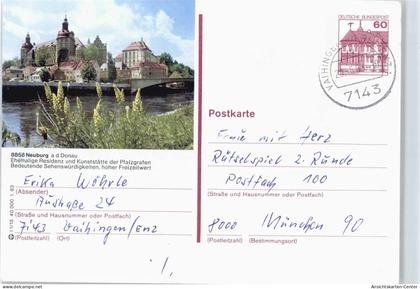 8858 Neuburg a d Donau
Ehemalige Residenz und Kunststätte der Pfalzgrafen
Bedeutende Sehenswürdigkeiten, hoher Freizeitwert
Erika Wöhrle
(Absender)
24
(Straße und Hausnummer oder Postfach)
7143 Vaihingen/Enz
(Postleitzahl) (Ort)
DEUTSCHE BUNDESPOST
60
VAIHINGEN
7143
Postkarte
Frau mit Herz
Rätselspiel 2. Runde
Postfach 100
(Straße und Hausnummer oder Postfach)
8000 München 90
(Postleitzahl) (Bestimmungsort)
www.Ansichtskarten-Center.de